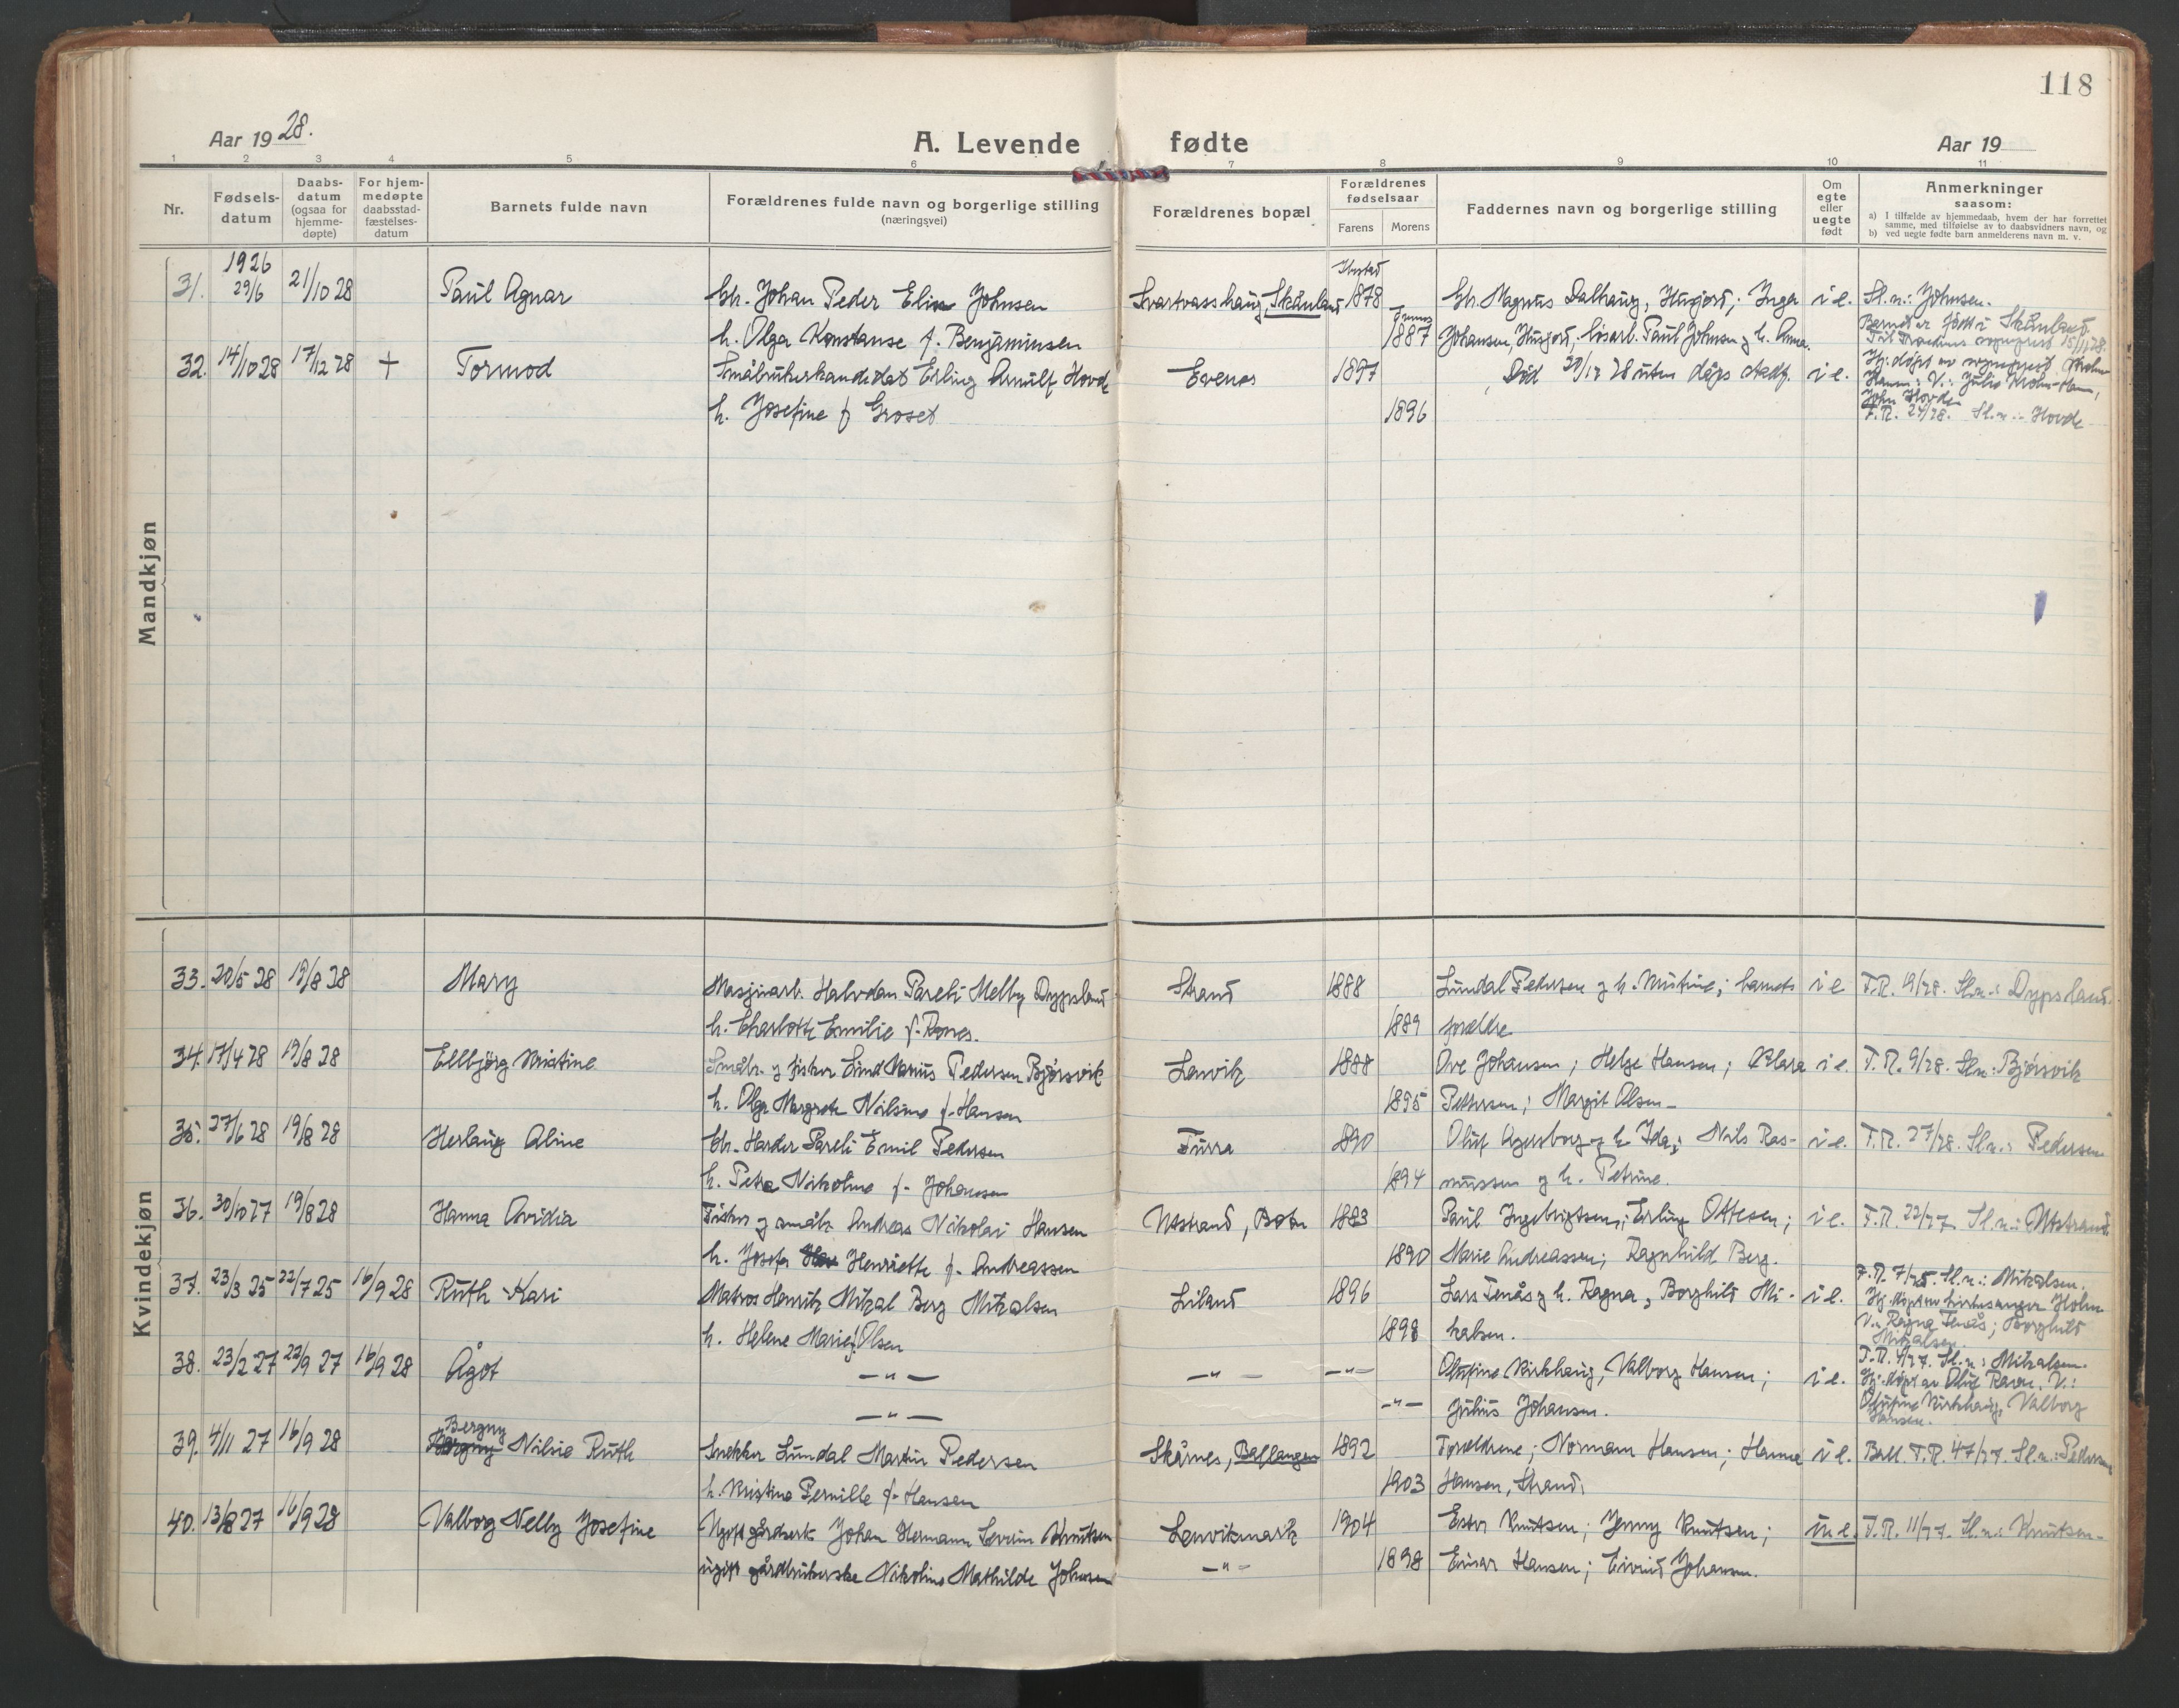 118
Aar 19 28.
A. Levende fødte
Aar 19
1 2 3 4 5 6 7 8 9 10 11
Nr.
Fødsels-
datum
Daabs-
datum
(ogsaa for
hjemme-
døpte)
For hjem-
medøpte
daabsstad-
fæstelses-
datum
Barnets fulde navn
Forældrenes fulde navn og borgerlige stilling
(næringsvei)
Forældrenes bopæl
Forældrenes
fødselsaar
Farens Morens
Faddernes navn og borgerlige stilling
Om
egte
eller
uegte
født
Anmerkninger
saasom:
a) I tilfælde av hjemmedaab, hvem der har forrettet
samme, med tilføielse av to daabsvidners navn, og
b) ved uegte fødte barn anmelderens navn m. v.
Mandkjøn
1926
31. 29/6 21/10 28 Paul Agnar Gbr. Johan Peder Elias Johnsen Svartvasshaug, Skånland Ibestad 1878 Gbr. Magnus Dalhaug, Inga i e. Sl.n.: Johnsen.
h. Olga Konstanse f. Benjaminsen 1887 Johansen, løsarb. Paul Johnsen og h. Anna. Barnet er født i Skånland.
15/11 28.
32. 14/10 28 17/12 28 + Tormod Småbrukerkandidat Erling Arnulf Hovde Evenes 1897 Död 20/12 28 uten dåps stadf. i e. Hj. døpt av sogneprest
h. Josefine f. Groset 1896
John Hovde
F.R. 24/28. Sl.n.: Hovde
Kvindekjøn
33. 20/5 28 19/8 28 Mary Masjinarb. Halvdan Pareli Melby Dypsland Strand 1888 Lundal Pedersen og h. Kristine; barnets i e T.R. 19/28. Sl.n.: Dypsland.
h. Charlotte Emilie f. 1889 forældre
34. 17/4 28 19/8 28 Ellbjörg Kristine Småbr. og fisker Lind Marius Pedersen Bjørsvik Lenvik 1888 Ove Johansen; Helge Hansen; Klara i e. T.R. 9/28. Sl.n.: Bjørsvik
h. Olga Margrete Nilsine f. Hansen 1895 Pettersen; Margit Olsen
35. 27/6 28 19/8 28 Herlaug Aline Gbr. Harder Pareli Emil Pedersen Turra 1890 Oluf Agersborg og h. Ida; Nils Ras- i e. T.R. 27/28. Sl.n.: Pedersen
h. Petra Nikoline f. Johansen 1894 mussen og h. Petrine.
36. 30/10 27 19/8 28 Hanna Ovidia Fisker og småbr. Andreas Nikolai Hansen Utstrand, Botn 1883 Paul Ingebrigtsen; Erling Ottesen; i e. T.R. 22/27 Sl.n.: Utstrand
h. Josefa Henriette f. Andreassen 1890 Marie Andreassen; Ragnhild Berg.
37. 23/3 25 22/7 25 16/9 28 Ruth Kari Matros Henrik Mikal Berg Mikalsen Liland 1896 Lars Tenås og h. Ragna, Borghild Mi- i e. F.R. 7/25. Sl.n.: Mikalsen.
h. Helene Marie f. Olsen 1898 kalsen. Hj. døpt av kirkesanger Holm
V.: Ragna Tenås; Borghild
Mikalsen.
38. 23/2 27 22/9 27 16/9 28 Ågot —"— —"— —"— Olufine Kirkhaug, Valborg Hansen; i e. T.R. 4/27. Sl.n.: Mikalsen.
—"— —"— Julius Johansen. Hj. døpt av Oluf V.:
Olufine Kirkhaug, Valborg
Hansen.
39. 4/11 27 16/9 28 Bergny Nilsie Ruth Snekker Lundal Martin Pedersen Skårnes, Ballangen 1892 Forældrene; Normann Hansen; Hanna i e. Ball. T.R. 47/27 Sl.n.: Pedersen
h. Kristine Pernille f. Hansen 1903 Hansen, Strand.
40. 13/8 27 16/9 28 Valborg Nelly Josefine Ugift gårdsark Johan Hermann Severin Knutsen Lenvikmark 1904 Ester Knutsen; Jenny Knutsen; u e. T.R. 11/27. Sl.n.: Knutsen
ugift gårdbrukerske Nikoline Mathilde Johnsen —"— 1898 Einar Hansen; Eivind Johansen.